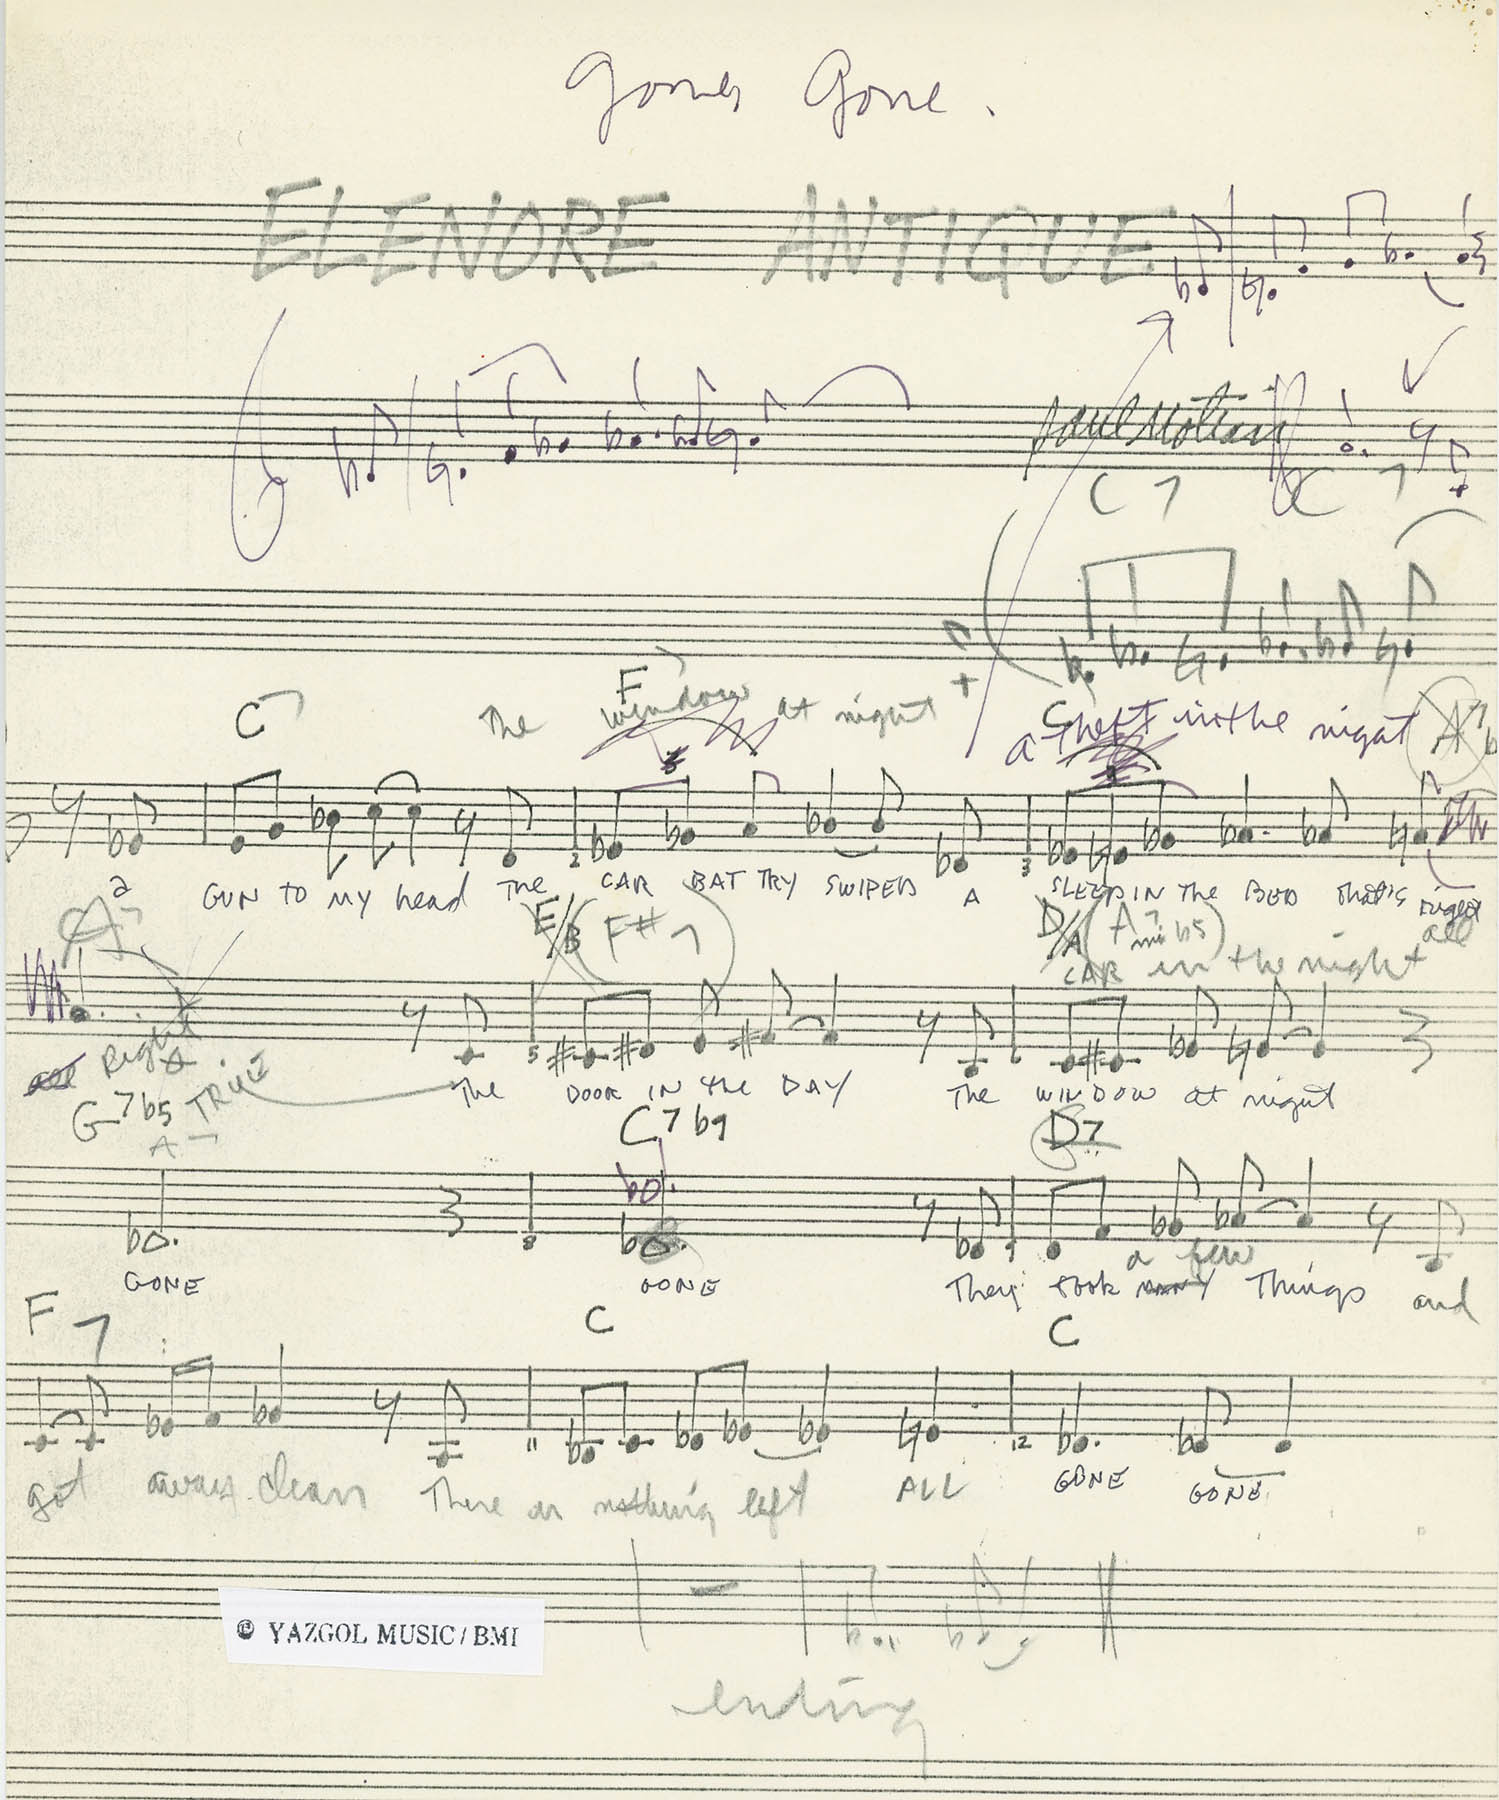 Gone Gone.
ELENORE ANTIQUE
Paul Motian
C 7 C 7
C 7 The F 7 window at night C a theft in the night A 7 b
a GUN TO MY head The CAR BATTRY SWIPED A SLEEP IN The BED That's right
A 7 E/B (F# 7) D/A (A mi 7 b5) all
CAR in the night
all Right TRUE The DOOR IN the DAY The WINDOW at night
G 7 b5 A 7 C7 b9 D7
GONE GONE They took MANY a few Things and
F 7 C C
got away clean There is nothing left ALL GONE GONE
© YAZGOL MUSIC / BMI
ending